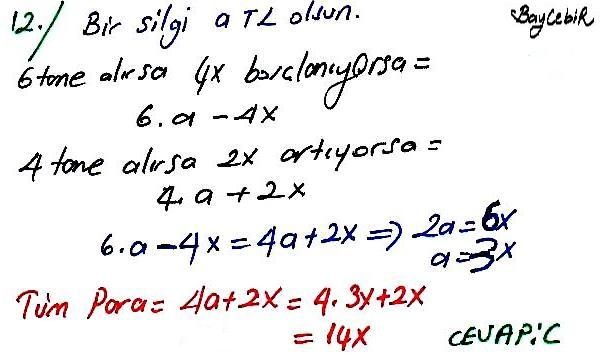 12./ Bir silgi a TL olsun.
BayCebiR
6 tane alırsa 4x borçlanıyorsa =
6.a - 4x
4 tane alırsa 2x artıyorsa =
4.a + 2x
6.a - 4x = 4a + 2x => 2a = 6x
a = 3x
Tüm Para = 4a + 2x = 4.3x + 2x
= 14x
CEVAP: C